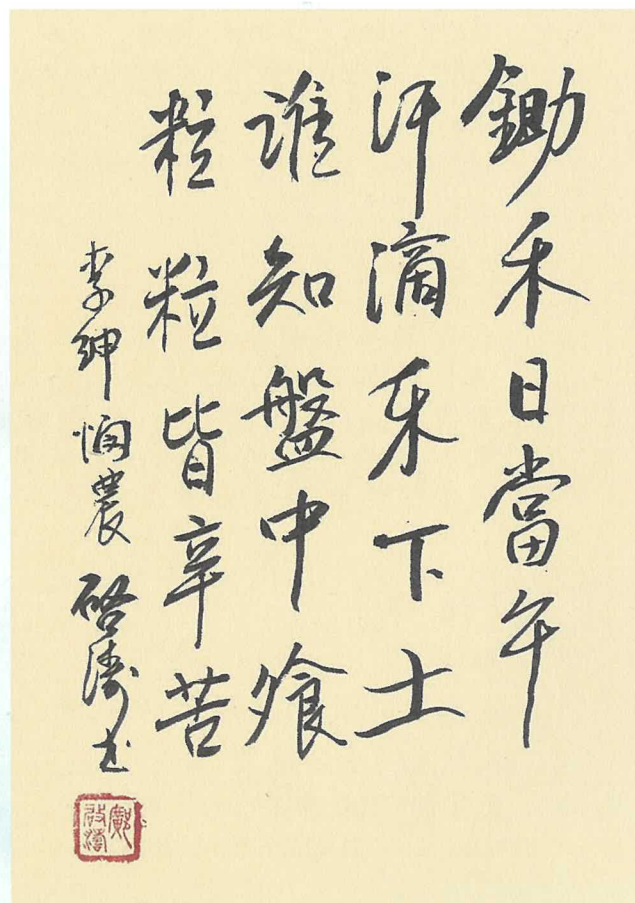 鋤禾日當午
汗滴禾下土
誰知盤中飧
粒粒皆辛苦
李紳憫農 啓濤书